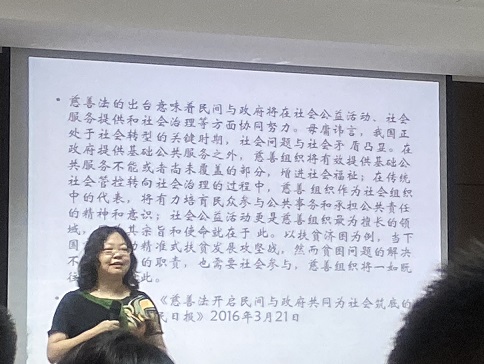 • 慈善法的出台意味着民间与政府将在社会公益活动、社会
服务提供和社会治理等方面协同努力。毋庸讳言，我国正
处于社会转型的关键时期，社会问题与社会矛盾凸显。在
政府提供基础公共服务之外，慈善组织将有效提供基础公
共服务不能或者尚未覆盖的部分，增进社会福祉；在传统
社会管控转向社会治理的过程中，慈善组织作为社会组织
中的代表，将有力培育民众参与公共事务和承担公共责任
的精神和意识；社会公益活动更是慈善组织最为擅长的领
域，其宗旨和使命就在于此。以扶贫济困为例，当下
国 动精准式扶贫发展攻坚战，然而贫困问题的解决
不 的职责，也需要社会参与，慈善组织将一如既
往 此。
• 《慈善法开启民间与政府共同为社会筑底的
民日报》2016年3月21日